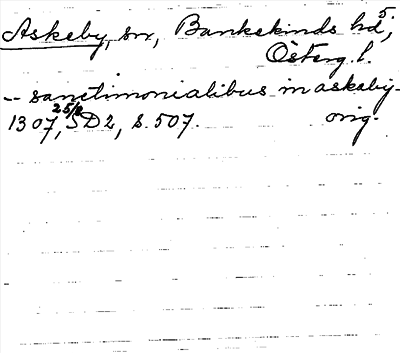 Askeby, sn, Bankekinds hd,
Österg. l.
-- sanctimonialibus in askeby -
1307 25/2, SD 2, s. 507. orig.